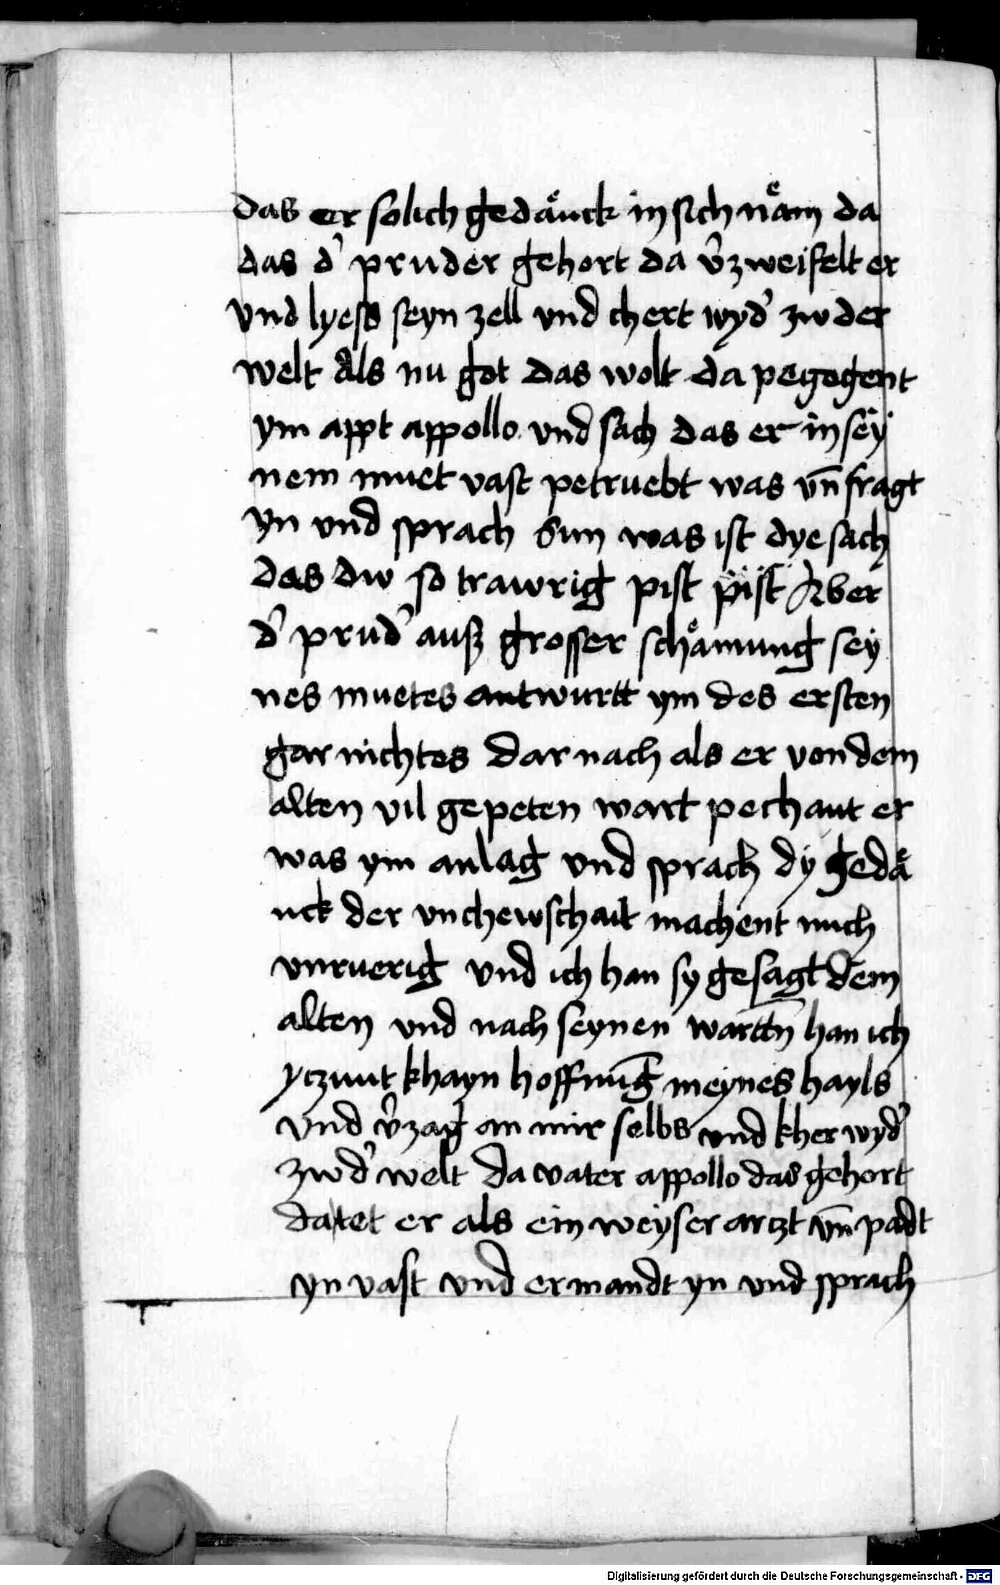 das er solich gedäͤnck in sich näͤm da
das d' pruder gehort da v'zweifelt er
vnd lyess seyn zell vnd chert wyd' zw der
welt Als nu got das wolt da pegegent
ym appt appollo vnd sach das er in sey
nem muet vast petruebt was vn̄ fragt
yn vnd sprach Sun was ist dye sach
das dw so trawrig pist pist Aber
d' prud' auß grosser schaͤmung sey
nes muetes antwurtt ym des ersten
gar nichtes Dar nach als er von dem
alten vil gepeten wart pechant er
was ym anlag vnd sprach dy gedaͤ
nck der vnchewschait machent mich
vnruerig vnd ich han sy gesagt dem
alten vnd nach seynen wartt̄n han ich
yczunt khayn hoffnūg meynes hayls
vnd v'zag an mir selbs vnd kher wyd'
zw d' welt Da vater appollo das gehort
da tet er als ein weyser arczt vn̄ padt
yn vast vnd ermandt yn vnd sprach
Digitalisierung gefördert durch die Deutsche Forschungsgemeinschaft - DFG